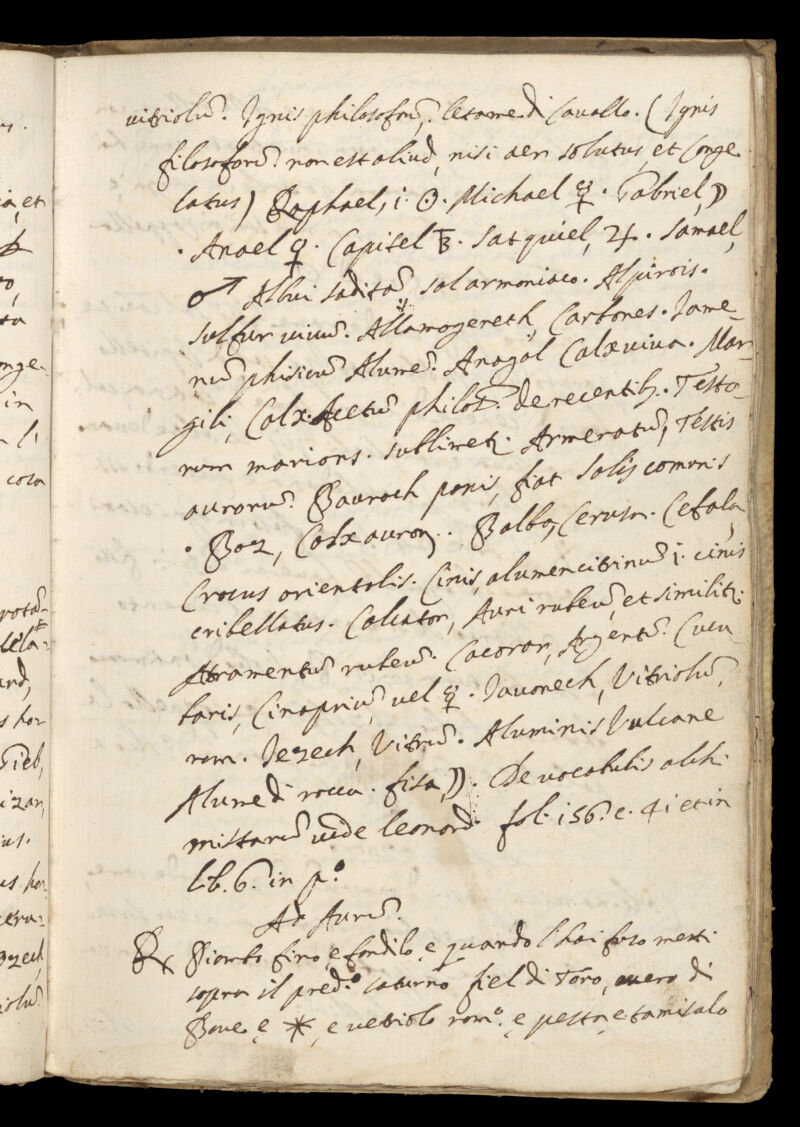 vitriolũ. Ignis philosoforũ, letame di Cavallo. (Ignis
filosoforũ non est aliud, nisi aer solutus, et Conge-
latus) Raphael, i. ☉. Michael ☿. Gabriel, ☽
. Anael ♀. Capisel ♄. Satquiel, ♃. Samael,
♂ Albui saditã, sal armoniaco. Alpirois.
sulfur vivũ. Allamogereth, Carbones. Iame-
nũ phisicũ Alumẽ. Anagol Calx viva. Mar-
gili, Calx. Acetũ philos. de recentib. Testo-
rum marions. sublimetr. Armeratũ, Testis
aurorũ. Bauroch panis, fiat Salis comunis
. Boz, Calx auror. Balba, Cerusa. Cefala,
Crocus orientalis. Cinis, alumen citrinũ i. cinis
cribellatus. Calcator, Auri rubeũ, et similitr.
Atramentũ rubeũ. Cacorar, Argentũ. Cucu-
baris, Cinapriũ, vel ☿. Iavonech, Vitriolũ,
rom. Iezech, Vitrũ. Aluminis Vulcane
Alume di rocca. fisa, ☽. De vocabulis alchi-
mistarũ vide leonard. fol. 156. c. 41 et in
lib. 6. in p.º
Ad Aurũ.
℞ Piombo fino, e fondilo, e quando l'hai fuso metti
sopra il pred.º saturno fiel di Toro, overo di
Bove, e ✳, e vetriolo rom.º e pesta, e tamisalo